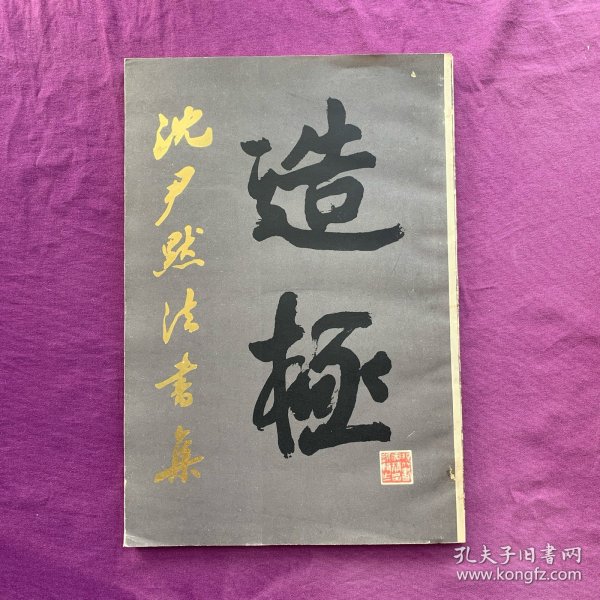 造極
沈尹默法書集
孔夫子旧书网
www.kongfz.com